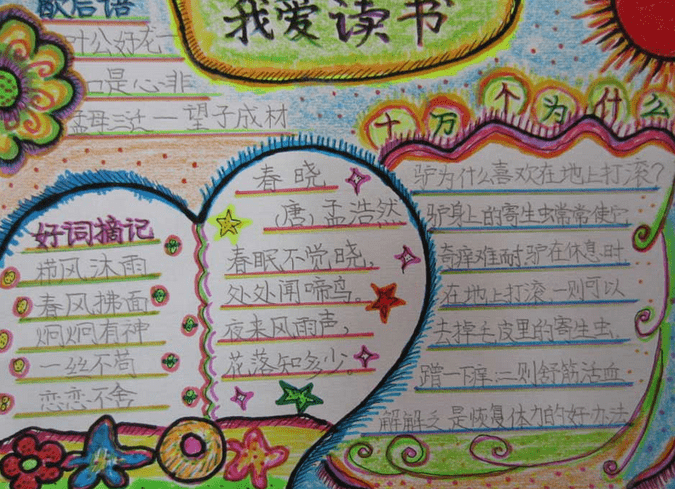 我爱读书
歇后语
叶公好龙一
口是心非
孟母三迁一望子成材
好词摘记
栉风沐雨
春风拂面
炯炯有神
一丝不苟
恋恋不舍
春晓
(唐)孟浩然
春眠不觉晓,
处处闻啼鸟。
夜来风雨声,
花落知多少。
十万个为什么
驴为什么喜欢在地上打滚?
驴身上的寄生虫常常使它
奇痒难耐,驴在休息时
在地上打滚,一则可以
去掉毛皮里的寄生虫,
蹭一下痒;二则舒筋活血
解解乏是恢复体力的好办法